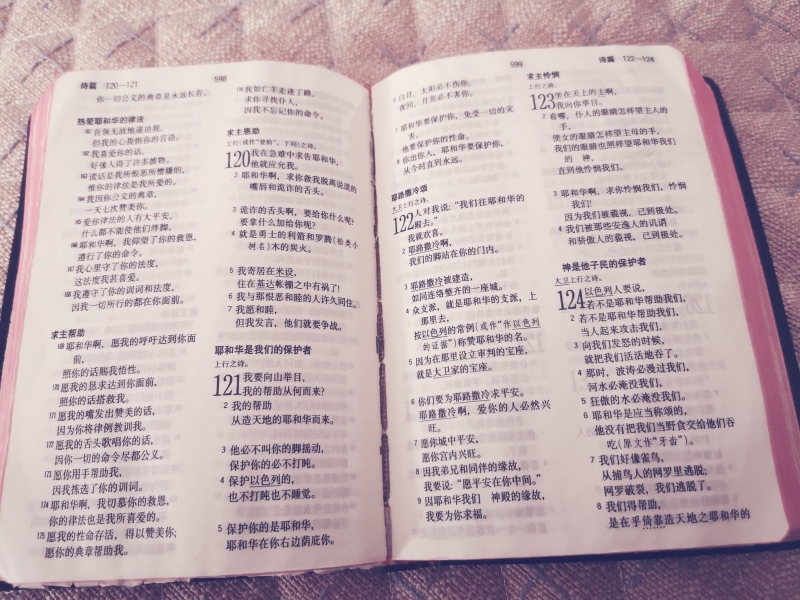 诗篇 120—121
598
你一切公义的典章是永远长存。
热爱耶和华的律法
161 首领无故地逼迫我，
但我的心畏惧你的言语。
162 我喜爱你的话，
好像人得了许多掳物。
163 谎话是我所恨恶所憎嫌的，
惟你的律法是我所爱的。
164 我因你公义的典章，
一天七次赞美你。
165 爱你律法的人有大平安，
什么都不能使他们绊脚。
166 耶和华啊，我仰望了你的救恩，
遵行了你的命令。
167 我心里守了你的法度，
这法度我甚喜爱。
168 我遵守了你的训词和法度，
因我一切所行的都在你面前。
求主帮助
169 耶和华啊，愿我的呼吁达到你面
前，
照你的话赐我悟性。
170 愿我的恳求达到你面前，
照你的话搭救我。
171 愿我的嘴发出赞美的话，
因为你将律例教训我。
172 愿我的舌头歌唱你的话，
因你一切的命令尽都公义。
173 愿你用手帮助我，
因我拣选了你的训词。
174 耶和华啊，我切慕你的救恩，
你的律法也是我所喜爱的。
175 愿我的性命存活，得以赞美你；
愿你的典章帮助我。
176 我如亡羊走迷了路，
求你寻找仆人，
因我不忘记你的命令。
求主恩助
上行（或作“登阶”，下同）之诗。
120 我在急难中求告耶和华，
他就应允我。
2 耶和华啊，求你救我脱离说谎的
嘴唇和诡诈的舌头。
3 诡诈的舌头啊，要给你什么呢？
要拿什么加给你呢？
4 就是勇士的利箭和罗腾（松类小
树名）木的炭火。
5 我寄居在米设，
住在基达帐棚之中有祸了！
6 我与那恨恶和睦的人许久同住。
7 我愿和睦，
但我发言，他们就要争战。
耶和华是我们的保护者
上行之诗。
121 我要向山举目，
我的帮助从何而来？
2 我的帮助
从造天地的耶和华而来。
3 他必不叫你的脚摇动，
保护你的必不打盹。
4 保护以色列的，
也不打盹也不睡觉。
5 保护你的是耶和华，
耶和华在你右边荫庇你。
599
诗篇 122—124
6 白日，太阳必不伤你；
夜间，月亮必不害你。
7 耶和华要保护你，免受一切的灾
害，
他要保护你的性命。
8 你出你入，耶和华要保护你，
从今时直到永远。
耶路撒冷颂
大卫上行之诗。
122 人对我说：“我们往耶和华的
殿去。”
我就欢喜。
2 耶路撒冷啊，
我们的脚站在你的门内。
3 耶路撒冷被建造，
如同连络整齐的一座城。
4 众支派，就是耶和华的支派，上
那里去，
按以色列的常例（或作“作以色列
的证据”）称赞耶和华的名。
5 因为在那里设立审判的宝座，
就是大卫家的宝座。
6 你们要为耶路撒冷求平安。
耶路撒冷啊，爱你的人必然兴
旺。
7 愿你城中平安，
愿你宫内兴旺。
8 因我弟兄和同伴的缘故，
我要说：“愿平安在你中间。”
9 因耶和华我们 神殿的缘故，
我要为你求福。
求主怜悯
上行之诗。
123 坐在天上的主啊，
我向你举目。
2 看哪，仆人的眼睛怎样望主人的
手，
使女的眼睛怎样望主母的手，
我们的眼睛也照样望耶和华我们
的 神，
直到他怜悯我们。
3 耶和华啊，求你怜悯我们，怜悯
我们！
因为我们被藐视，已到极处。
4 我们被那些安逸人的讥诮
和骄傲人的藐视，已到极处。
神是他子民的保护者
大卫上行之诗。
124 以色列人要说，
若不是耶和华帮助我们，
2 若不是耶和华帮助我们，
当人起来攻击我们，
3 向我们发怒的时候，
就把我们活活地吞了。
4 那时，波涛必漫过我们，
河水必淹没我们，
5 狂傲的水必淹没我们。
6 耶和华是应当称颂的，
他没有把我们当野食交给他们吞
吃（原文作“牙齿”）。
7 我们好像雀鸟，
从捕鸟人的网罗里逃脱；
网罗破裂，我们逃脱了。
8 我们得帮助，
是在乎倚靠造天地之耶和华的